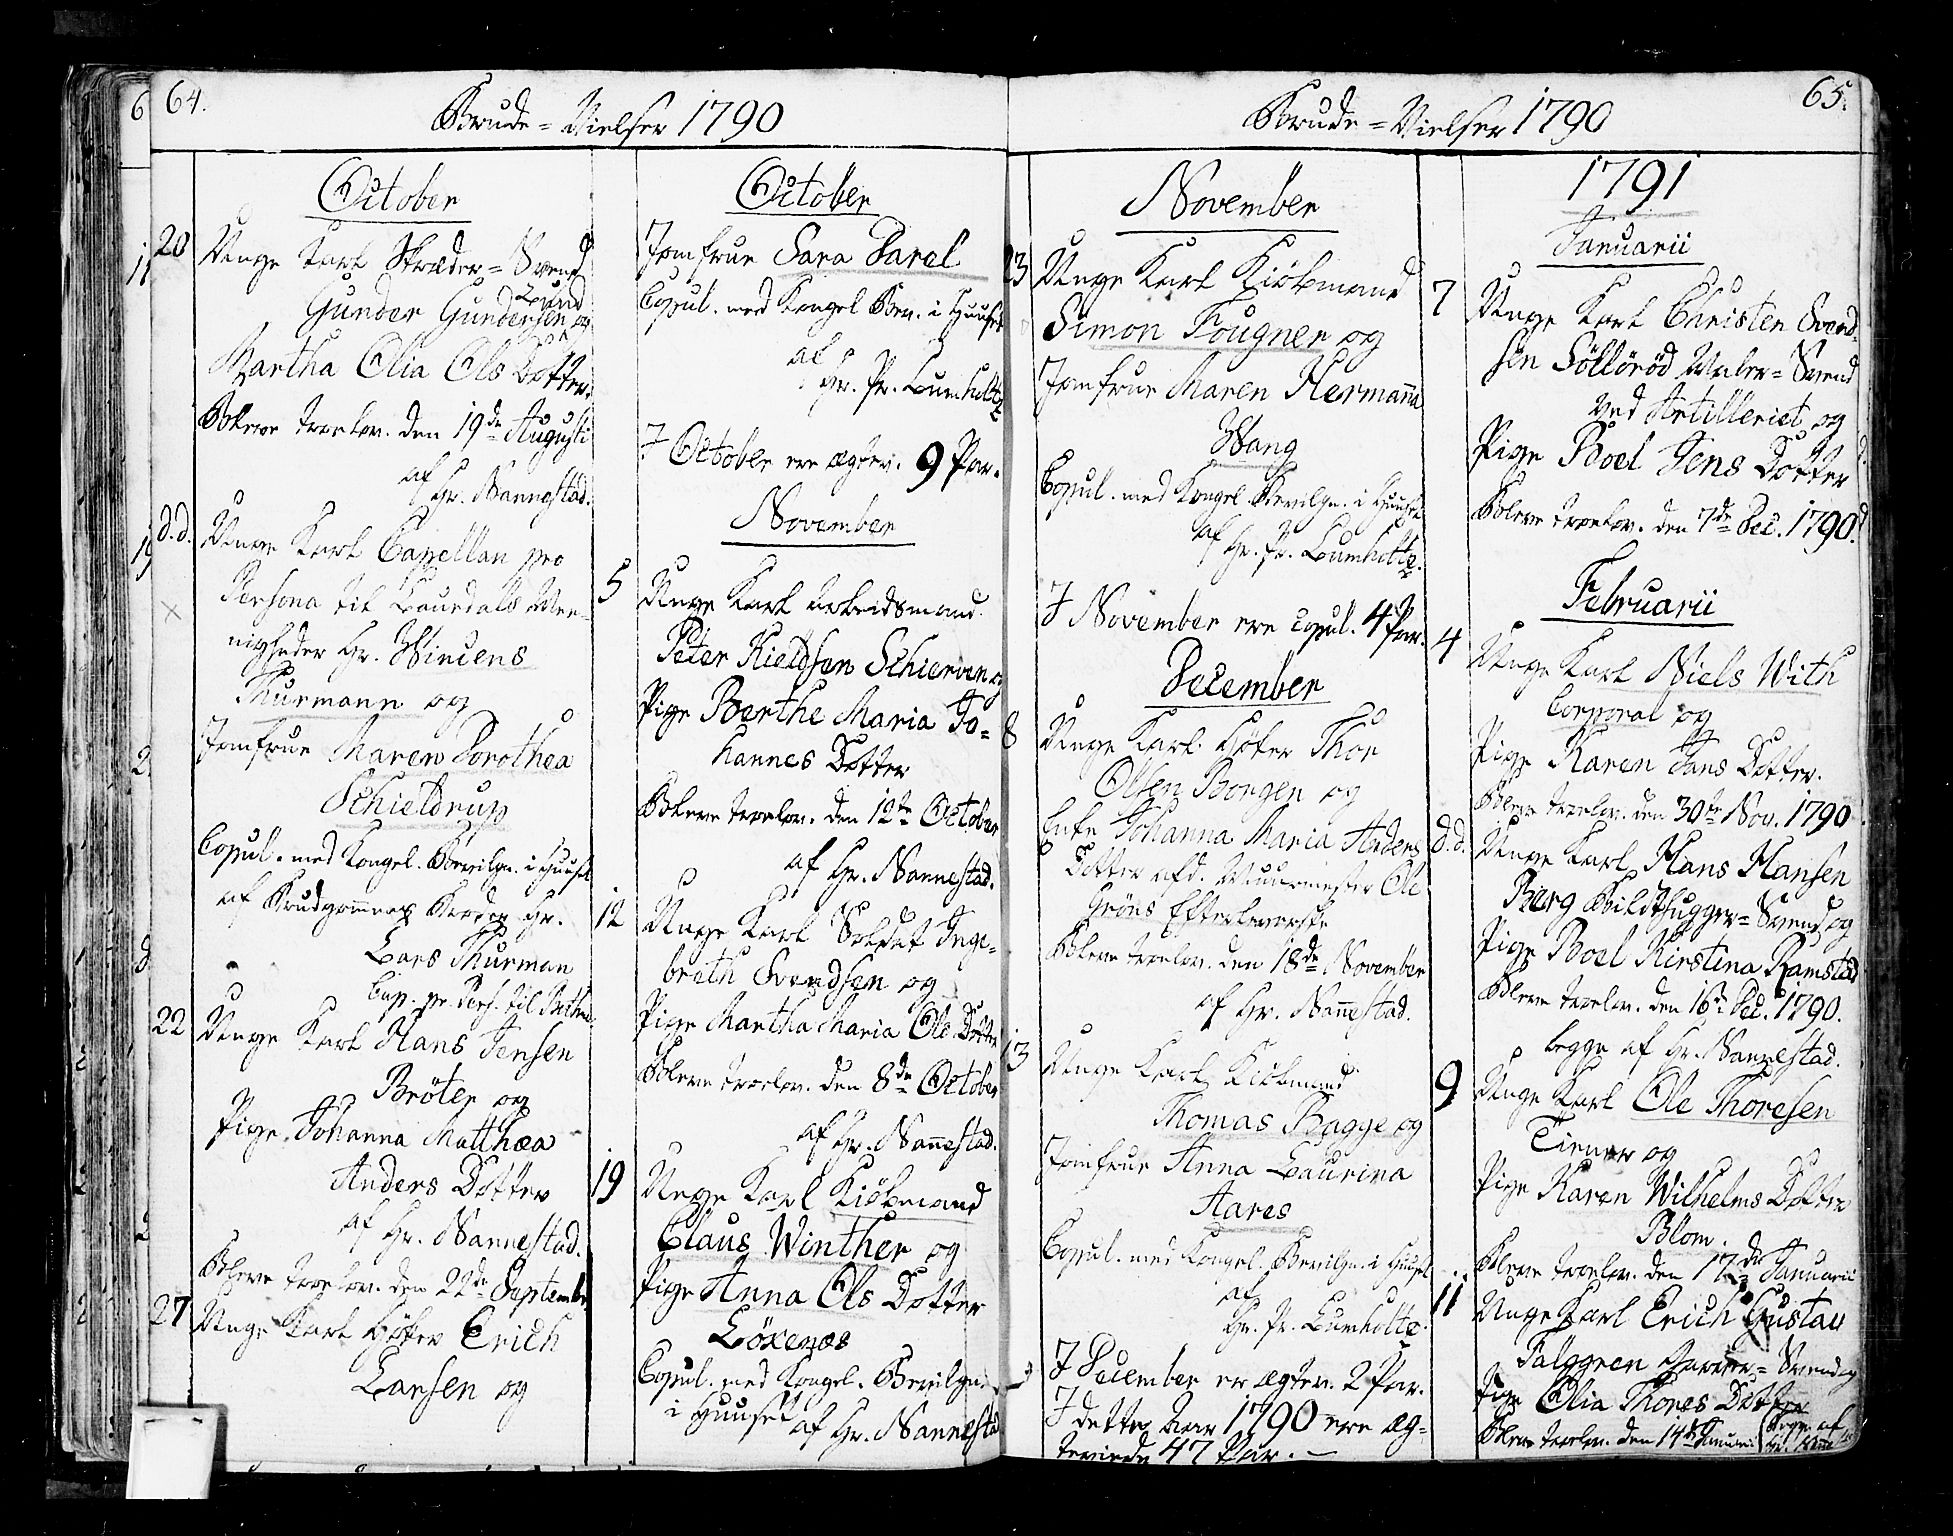 64.
Brude=Vielser 1790
October
20 Unge Karl Skræder=Svend
Gunder Gundersen Lund og
Martha Olia Ols Dotter.
Bleve trolov. den 19de Augusti
af Hr. Nannestad.
d.d. Unge Karl Capellan pro
Persona til Laurdals Me=
nigheder Hr. Wincens
Thurmann og
Jomfrue Maren Dorothea
Schieldrup
Copul. med Kongel. Bevilgn. i Huuset
af Brudgommens Broder Hr.
Lars Thurman
Cap. pr. Pers. til
22 Unge Karl Hans Jensen
Bröter og
Pige Johanna Matthea
Anders Dotter
af Hr. Nannestad.
Bleve trolov. den 22de September
27 Unge Karl Høker Erich
Larsen og
October
Jomfrue Sara Parel
Copul. med Kongel Bev. i Huuset
af
Hr. Pr. Lumholtz
I October ere ægtev. 9 Par.
November
5 Unge Karl Arbeidsmand
Peter Kieldsen Schierven og
Pige Berthe Maria Jo=
hannes Dotter
Bleve trolov. den 12te October
af Hr. Nannestad.
12 Unge Karl Soldat Inge=
breth Svendsen og
Pige Martha Maria Ole Dotter
Bleve trolov. den 8de October
af Hr. Nannestad.
19 Unge Karl Kiöbmand
Claus Winther og
Pige Anna Ols Dotter
Löxenæs
Copul. med Kongel. Bevilgn.
i Huuset af Hr. Nannestad
65.
Brude=Vielser 1790
November
23 Unge Karl Kiöbmand
Simon Fougner og
Jomfrue Maren Hermanna
Wang
Copul. med Kongel Bevilgn. i Huuset
af Hr. Pr. Lumholtz.
I November ere copul. 4 Par.
December
8 Unge Karl Høker Thor
Olsen Borgen og
Enke Johanna Maria Anders
Dotter afd. Muurmester Ole
Gröns Efterleverske
Bleve trolov. den 18de November
af Hr. Nannestad.
13 Unge Karl Kiöbmand
Thomas Bagge og
Jomfrue Anna Laurina
Aares
Copul. med Kongel. Bevilgn. i Huuset
af
Hr. Pr. Lumholtz.
I December er ægtev. 2 Par.
I dette Aar 1790 ere æg=
teviede 47 Par.
1791
Januarii
7 Unge Karl Christen Svend=
sen Sölleröd Maler=Svend
ved Artilleriet og
Pige Boel Jens Dotter
Bleve trolov. den 7de Dec. 1790.
Februarii
4 Unge Karl Niels With
Corporal og
Pige Karen Jans Dotter.
Bleve trolov. den 30te Nov. 1790
d.d. Unge Karl Hans Hansen
Berg Bildthugger=Svend og
Pige Boel Kirstina Ramstad
Bleve trolov. den 16de Dec. 1790.
begge af Hr. Nannestad.
9 Unge Karl Ole Thoresen
Tiener og
Pige Karen Wilhelms Dotter
Blom.
Bleve trolov. den 17de Januarii
11 Unge Karl Erich Gustav
Falggren Garver=Svend og
Pige Olia Thores Dotter
Bleve trolov. den 14de Januarii begge af